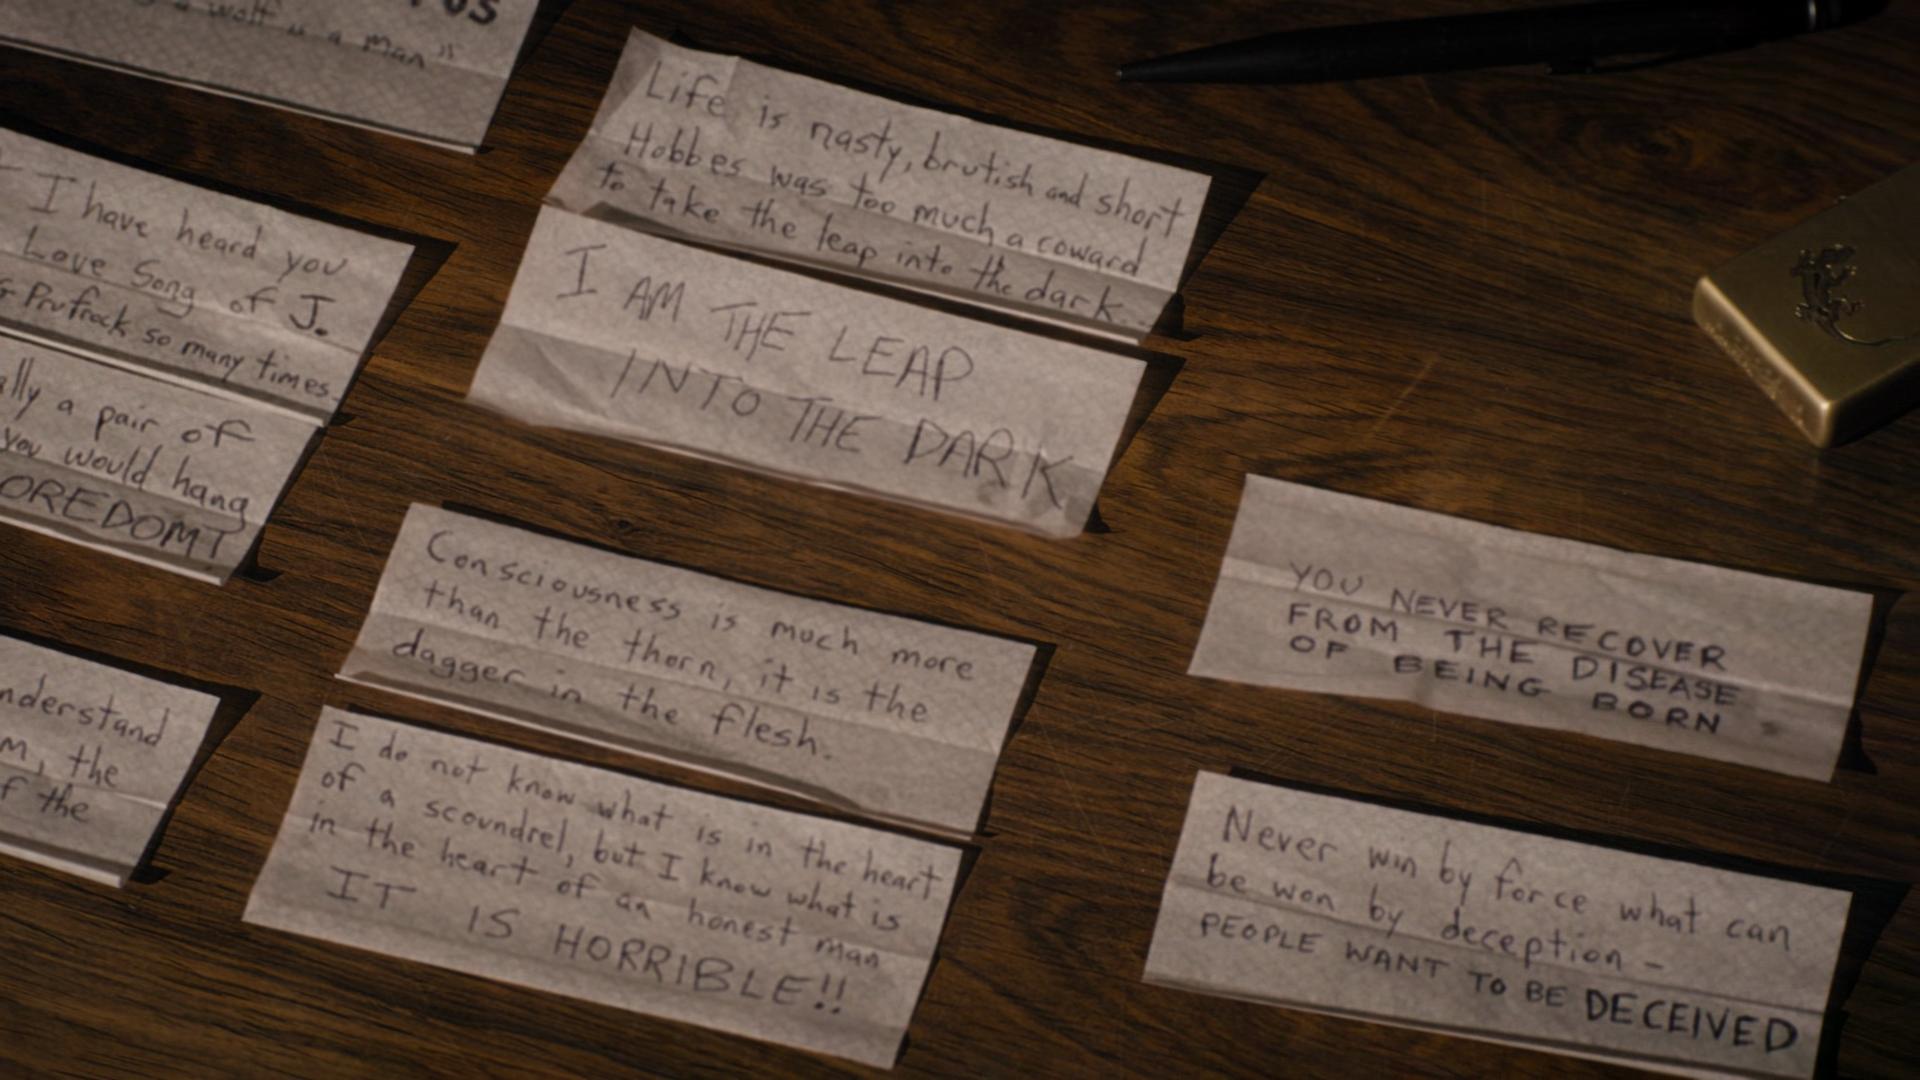 a wolf is a Man"
I have heard you
Love Song of J.
Prufrock so many times.
a pair of
you would hang
the
the
Life is nasty, brutish and short
Hobbes was too much a coward
to take the leap into the dark..
I AM THE LEAP
INTO THE DARK
Consciousness is much more
than the thorn, it is the
dagger in the flesh.
I do not know what is in the heart
of a scoundrel, but I know what is
in the heart of an honest man
IT IS HORRIBLE!!
YOU NEVER RECOVER
FROM THE DISEASE
OF BEING BORN
Never win by force what can
be won by deception -
PEOPLE WANT TO BE DECEIVED